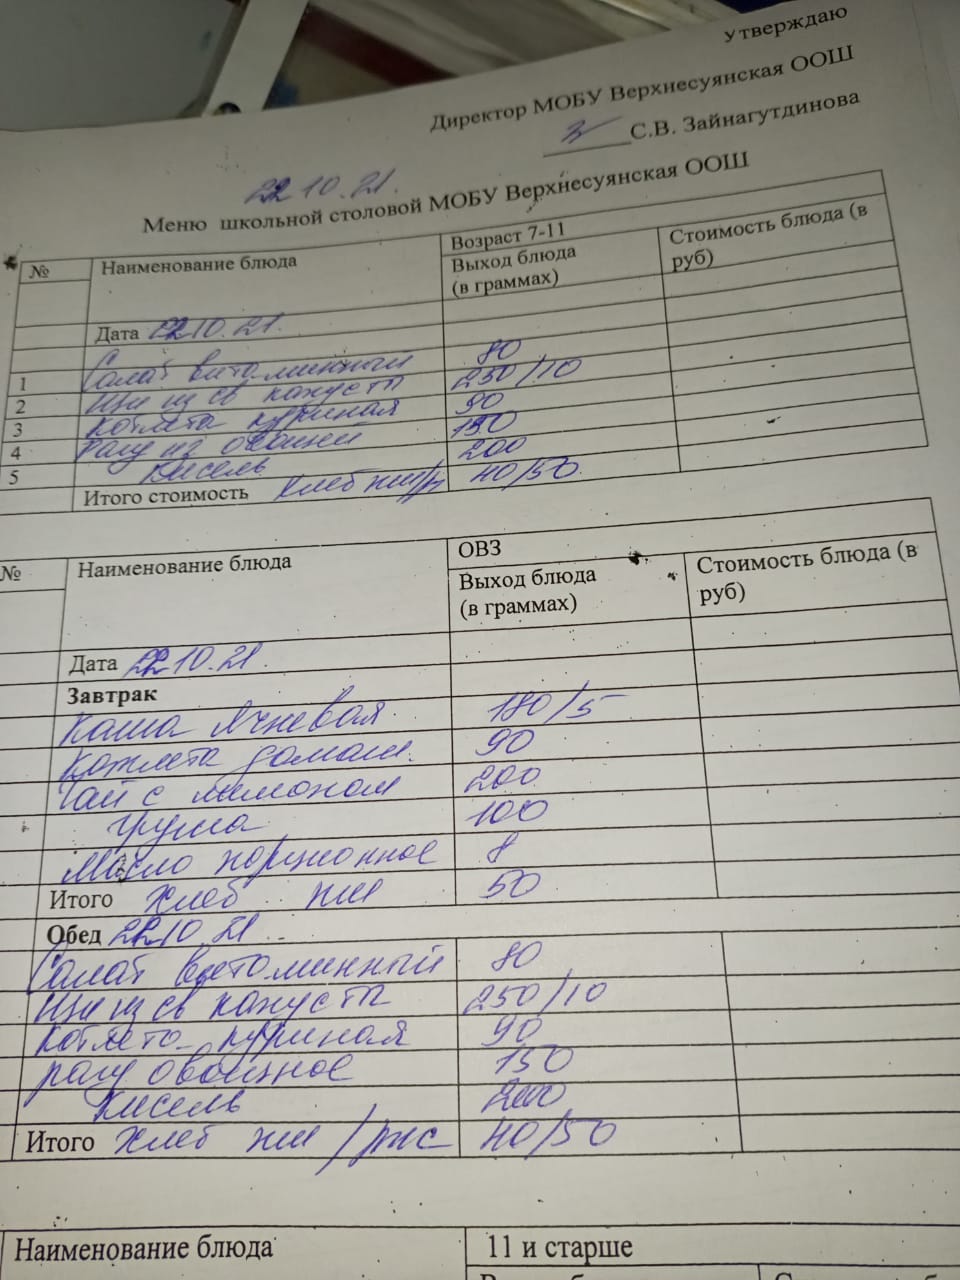 Утверждаю
Директор МОБУ Верхнесуянская ООШ
С.В. Зайнагутдинова
22.10.21.
Меню школьной столовой МОБУ Верхнесуянская ООШ
№ Наименование блюда Возраст 7-11
Выход блюда (в граммах) Стоимость блюда (в руб)
Дата 22.10.21.
1 Салат витоминный 80
2 Щи из св капусты 250/10
3 Котлета куриная 90
4 Рагу из овощей 150
5 Кисель 200
Итого стоимость Хлеб пш/р 40/50
№ Наименование блюда ОВЗ
Выход блюда (в граммах) Стоимость блюда (в руб)
Дата 22.10.21
Завтрак
Каша Ячневая 180/5
Котлета домаш. 90
Чай с лимоном 200
Груша 100
Масло порционное 8
Итого Хлеб пш 50
Обед 22.10.21
Салат витоминный 80
Щи из св капусты 250/10
Котлета куриная 90
рагу овощное 150
Кисель 200
Итого Хлеб пш/рж 40/50
Наименование блюда 11 и старше